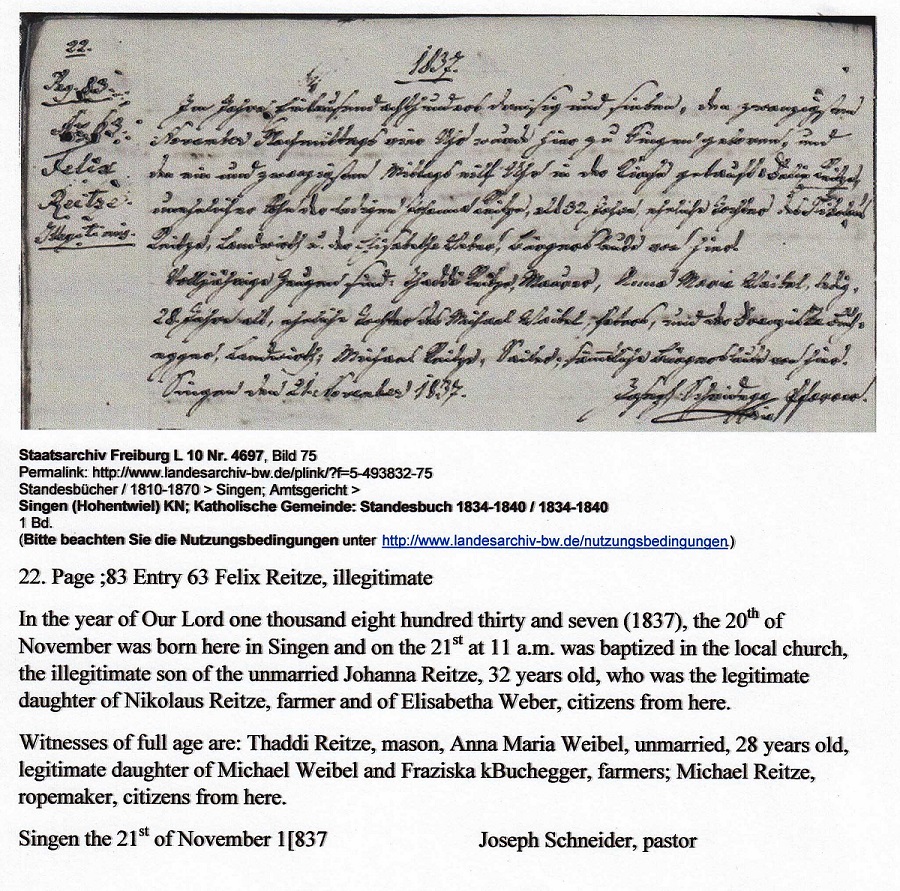 22.
1837.
Pag. 83.
Im Jahre Eintausend achthundert dreißig und sieben, den zwanzigsten
Nro 63.
November Nachmittags vier Uhr wurde hier zu Singen geboren, und
Felix
den ein und zwanzigsten Mittags eilf Uhr in der Kirche getauft: Felix Reitze,
Reitze.
unehelicher Sohn der ledigen Johanna Reitze, alt 32 Jahre, eheliche Tochter des Nikolaus
Illegitimus.
Reitze, Landwirth u. der Elisabetha Weber, Bürgersleute von hier.
Volljährige Zeugen sind: Thaddä Reitze, Maurer, Anna Maria Waibel, ledig,
28 Jahre alt, eheliche Tochter des Michael Waibel, und der Franziska Buch-
egger, Landwirth; Michael Reitze, Seiler, sämmtliche Bürgersleute von hier.
Singen den 21. November 1837. Joseph Schneider Pfarrer.
Staatsarchiv Freiburg L 10 Nr. 4697, Bild 75
Permalink: http://www.landesarchiv-bw.de/plink/?f=5-493832-75
Standesbücher / 1810-1870 > Singen; Amtsgericht >
Singen (Hohentwiel) KN; Katholische Gemeinde: Standesbuch 1834-1840 / 1834-1840
1 Bd.
(Bitte beachten Sie die Nutzungsbedingungen unter http://www.landesarchiv-bw.de/nutzungsbedingungen.)
22. Page ;83 Entry 63 Felix Reitze, illegitimate
In the year of Our Lord one thousand eight hundred thirty and seven (1837), the 20th of
November was born here in Singen and on the 21st at 11 a.m. was baptized in the local church,
the illegitimate son of the unmarried Johanna Reitze, 32 years old, who was the legitimate
daughter of Nikolaus Reitze, farmer and of Elisabetha Weber, citizens from here.
Witnesses of full age are: Thaddi Reitze, mason, Anna Maria Weibel, unmarried, 28 years old,
legitimate daughter of Michael Weibel and Fraziska kBuchegger, farmers; Michael Reitze,
ropemaker, citizens from here.
Singen the 21st of November 1[837 Joseph Schneider, pastor